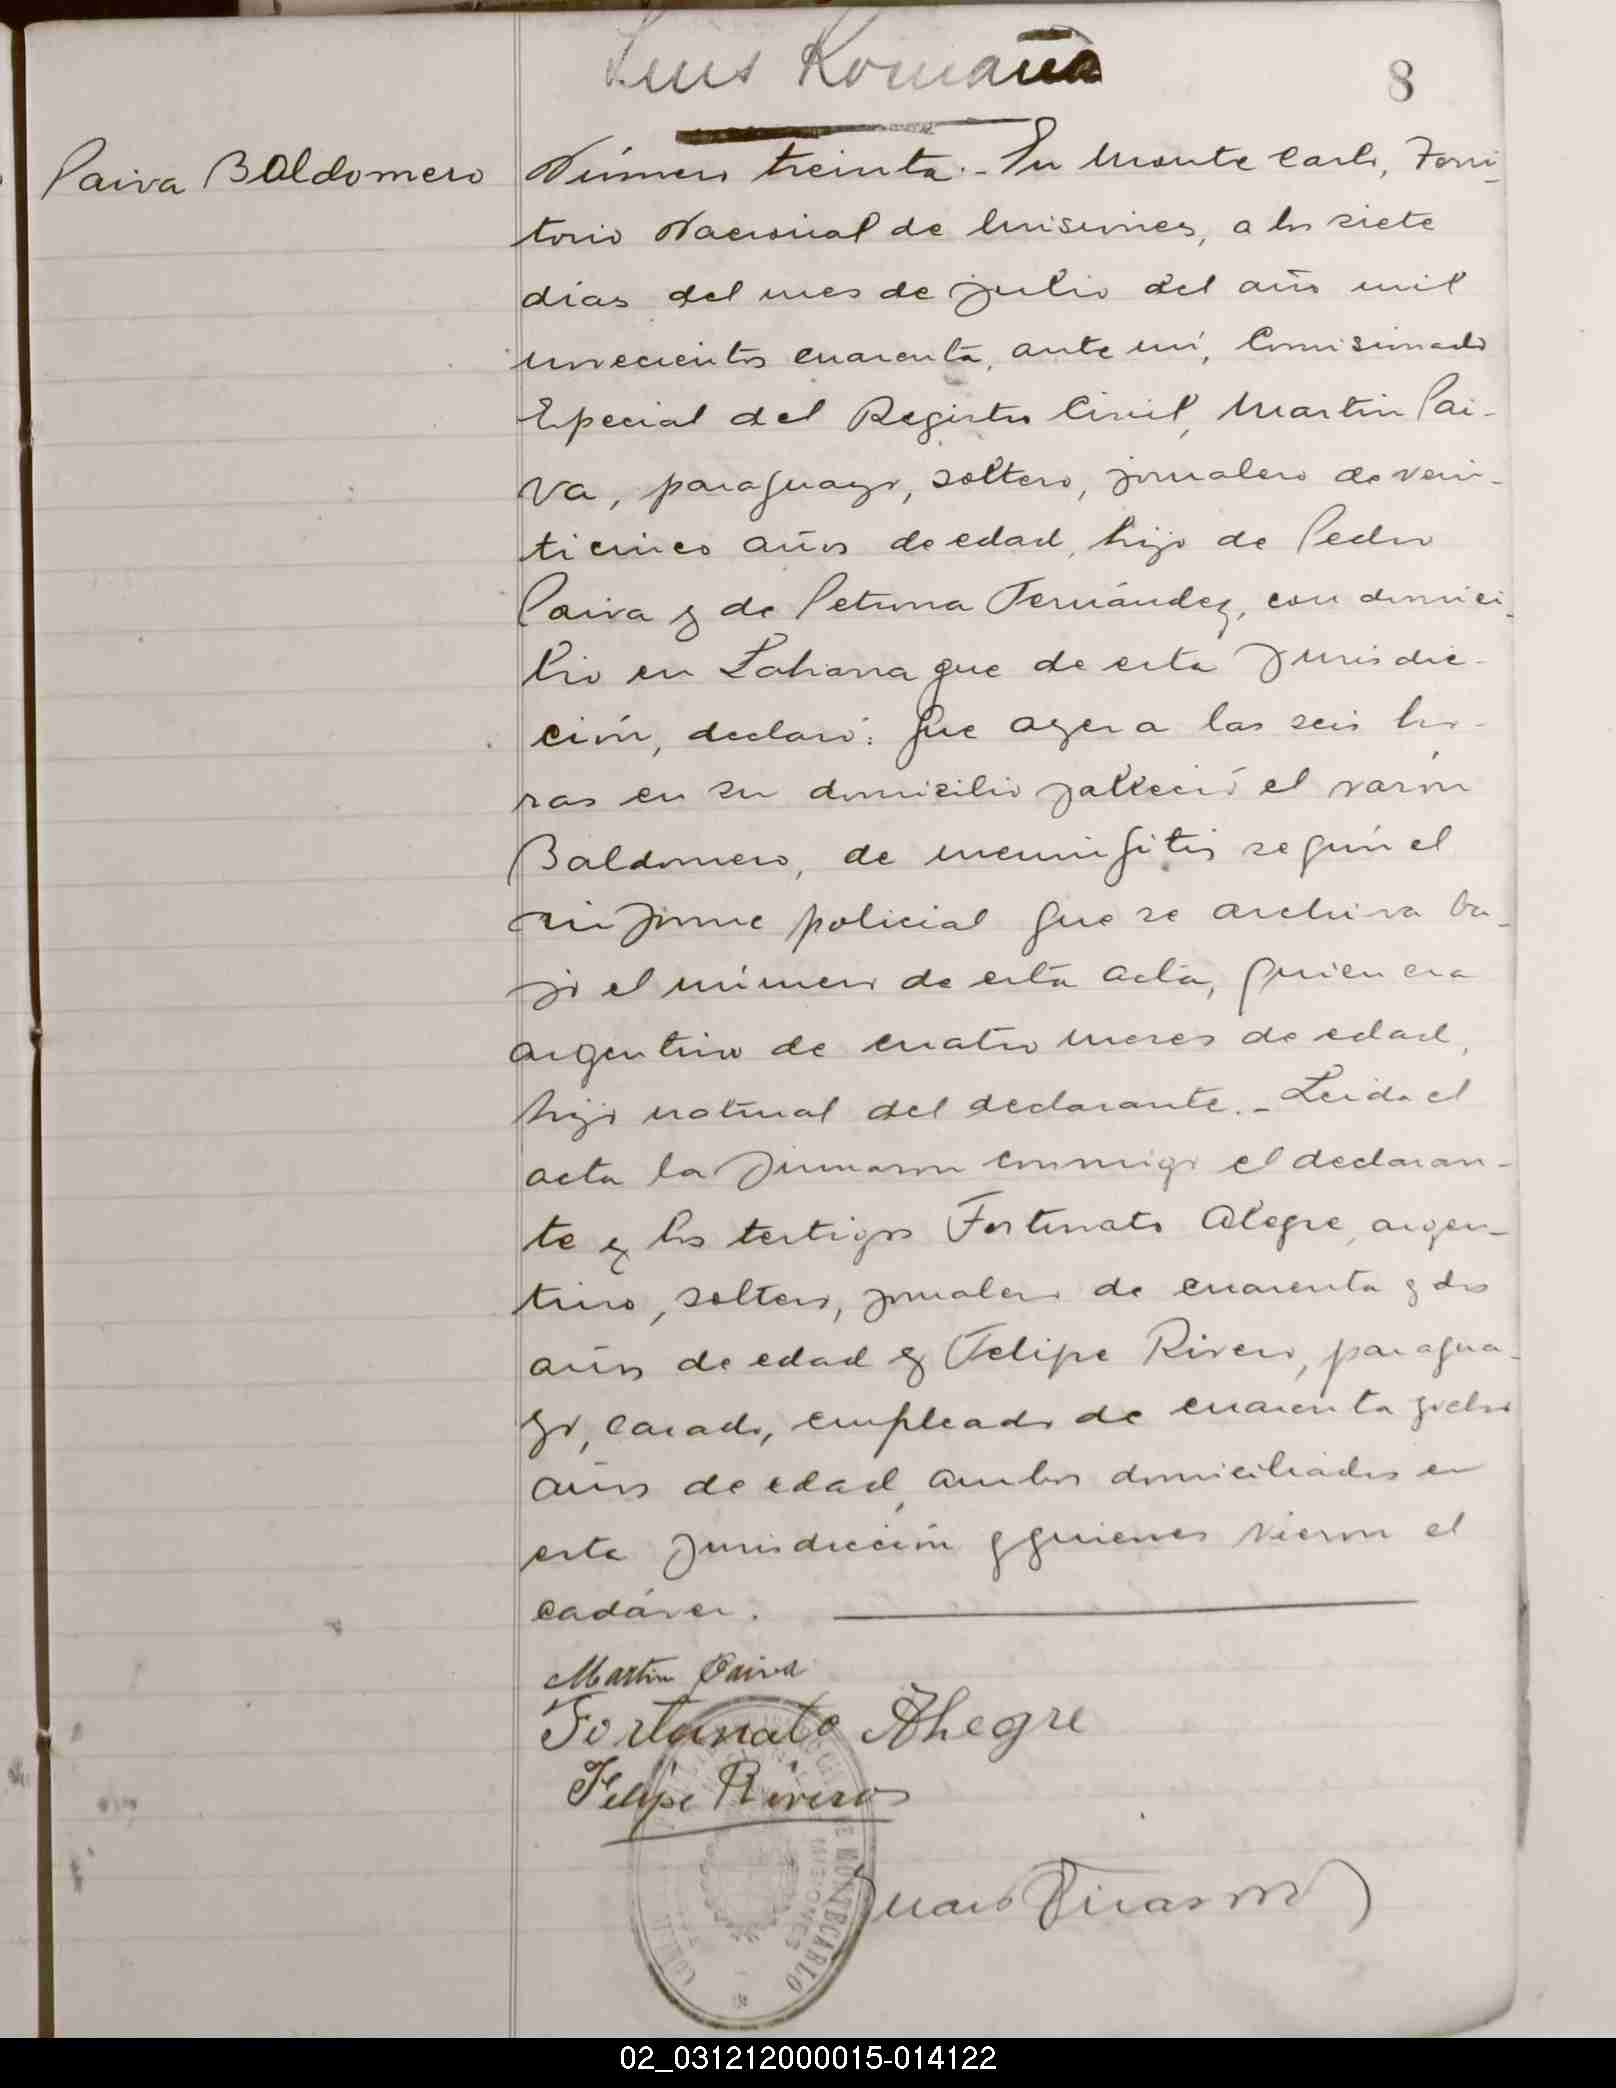 Luis Romaña
8
Paiva Baldomero
Número treinta.- En Monte Carlo, Terri-
torio Nacional de Misiones, a los siete
días del mes de julio del año mil
novecientos cuarenta, ante mí, Comisionado
Especial del Registro Civil, Martin Pai-
va, paraguayo, soltero, jornalero de vein-
ticinco años de edad, hijo de Pedro
Paiva y de Petrona Fernández, con domici-
lio en que de esta jurisdic-
ción, declaró: Que ayer a las seis ho-
ras en su domicilio falleció el varón
Baldomero, de meningitis según el
informe policial que se archiva ba-
jo el número de esta acta, quien era
argentino de cuatro meses de edad,
hijo natural del declarante.- Leida el
acta la firmaron conmigo el declaran-
te y los testigos Fortunato Alegre, argen-
tino, soltero, jornalero de cuarenta y dos
años de edad y Felipe Rivero, paragua-
yo, casado, empleado de cuarenta y ocho
años de edad, ambos domiciliados en
esta jurisdicción y quienes vieron el
cadáver.
Martin Paiva
Fortunato Alegre
Felipe Riveros
DE MONTECARLO
MISIONES
02_031212000015-014122